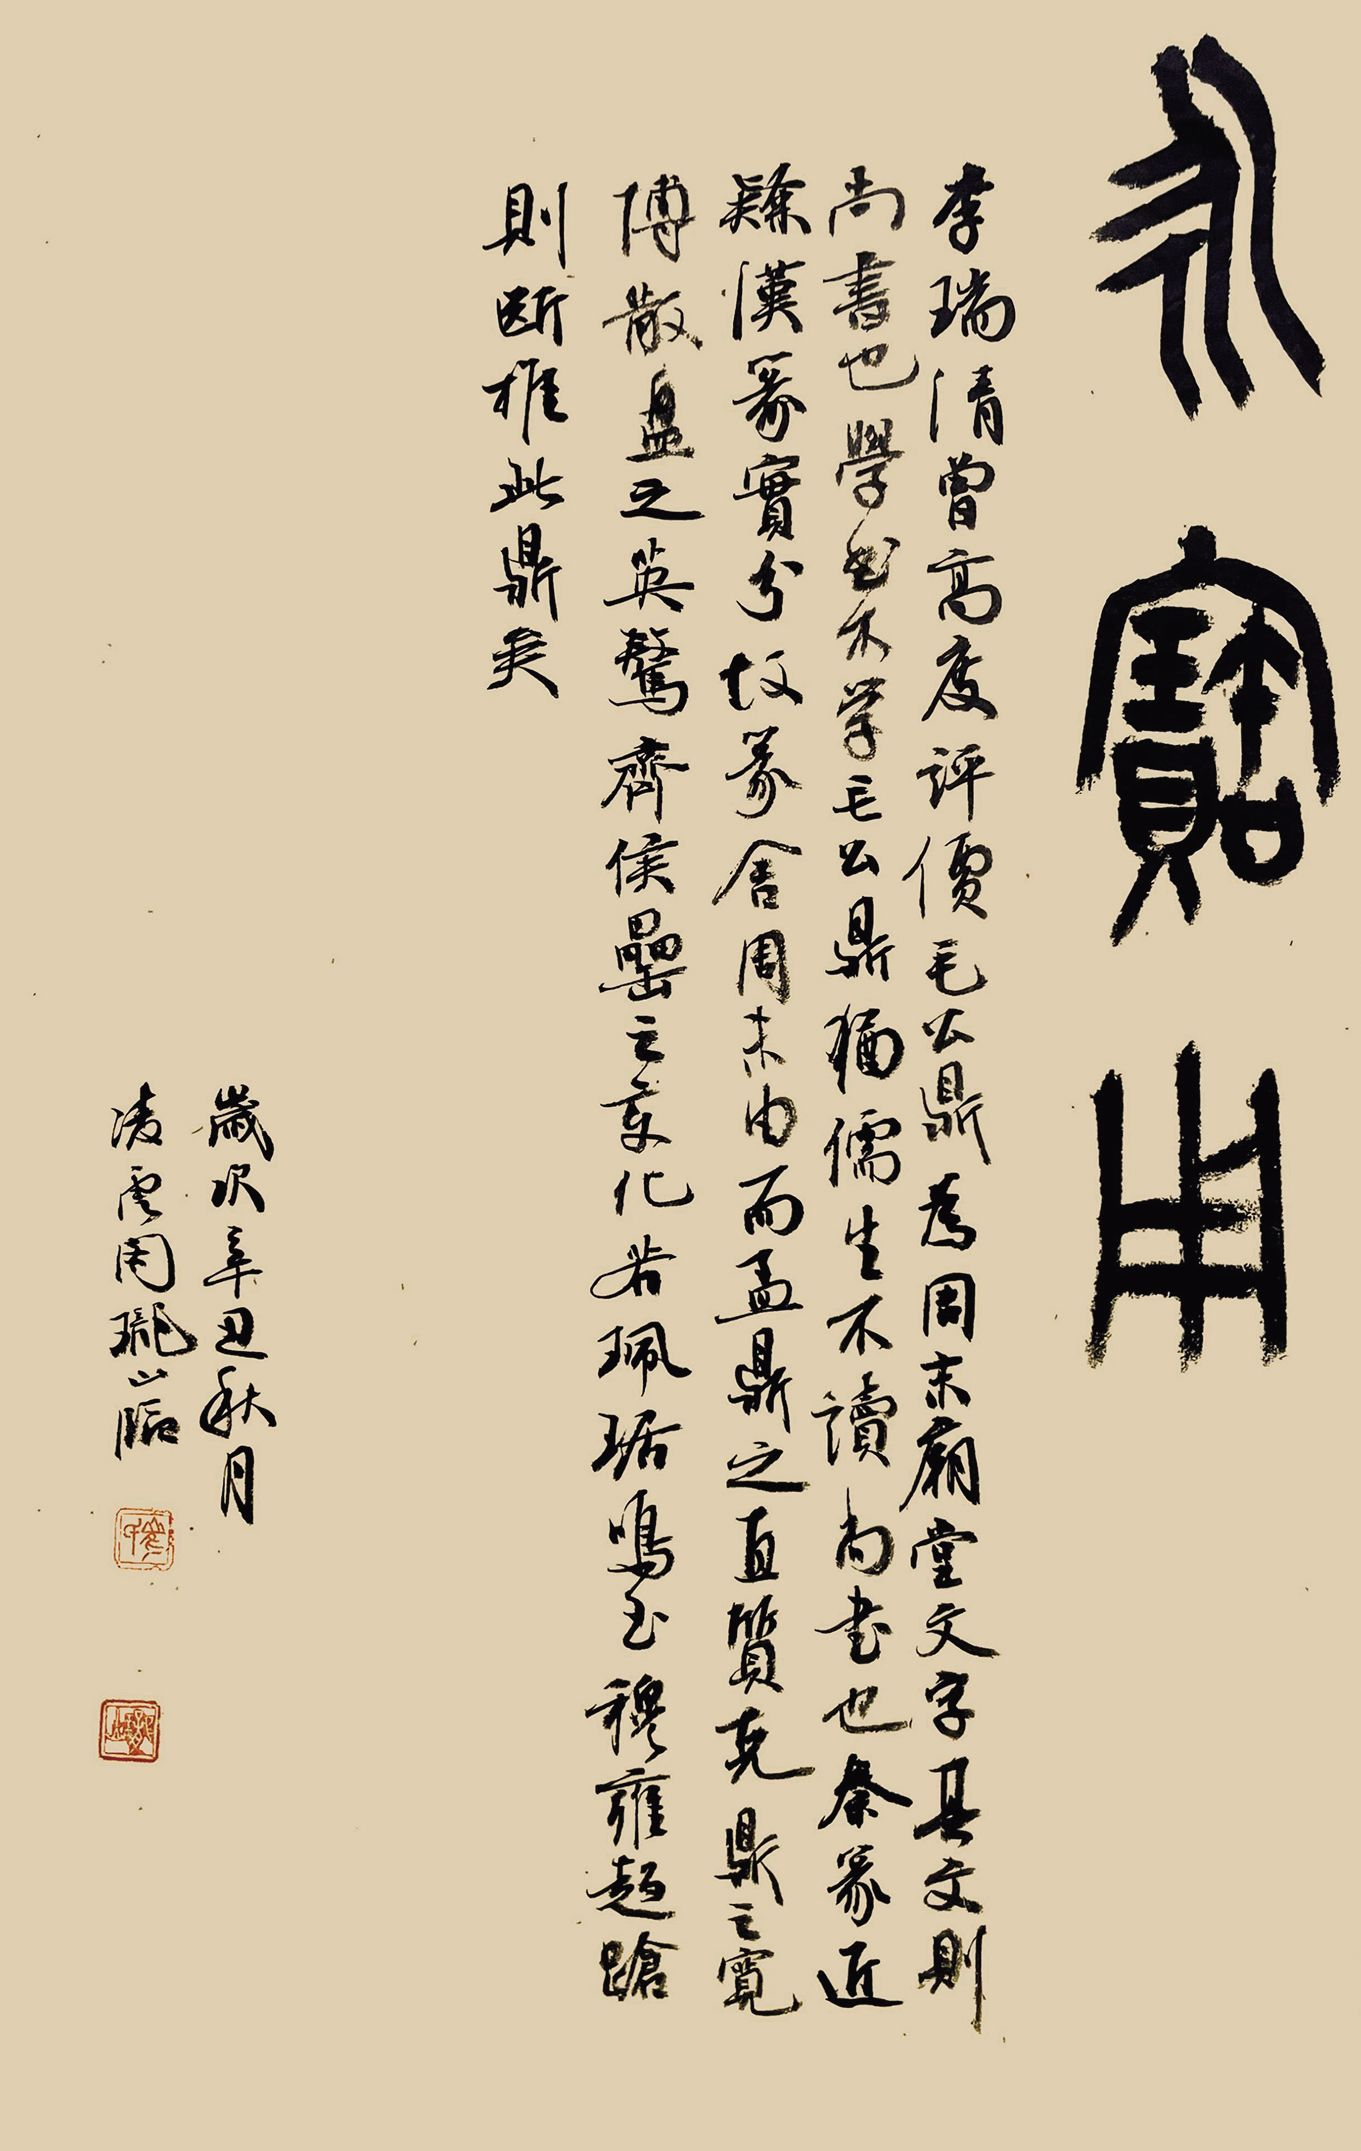 永寶用
李瑞清曾高度評價毛公鼎為周末廟堂文字其文則
尚書也學书不学毛公鼎猶儒生不讀尚书也秦篆近
隸漢篆實分故篆舍周末由而盂鼎之直質克鼎之寬
博散盘之英鷙齊侯罍之变化若珮琚鳴玉穆雍趨蹌
則斷推此鼎矣
歲次辛丑秋月
凌云周瓏山臨